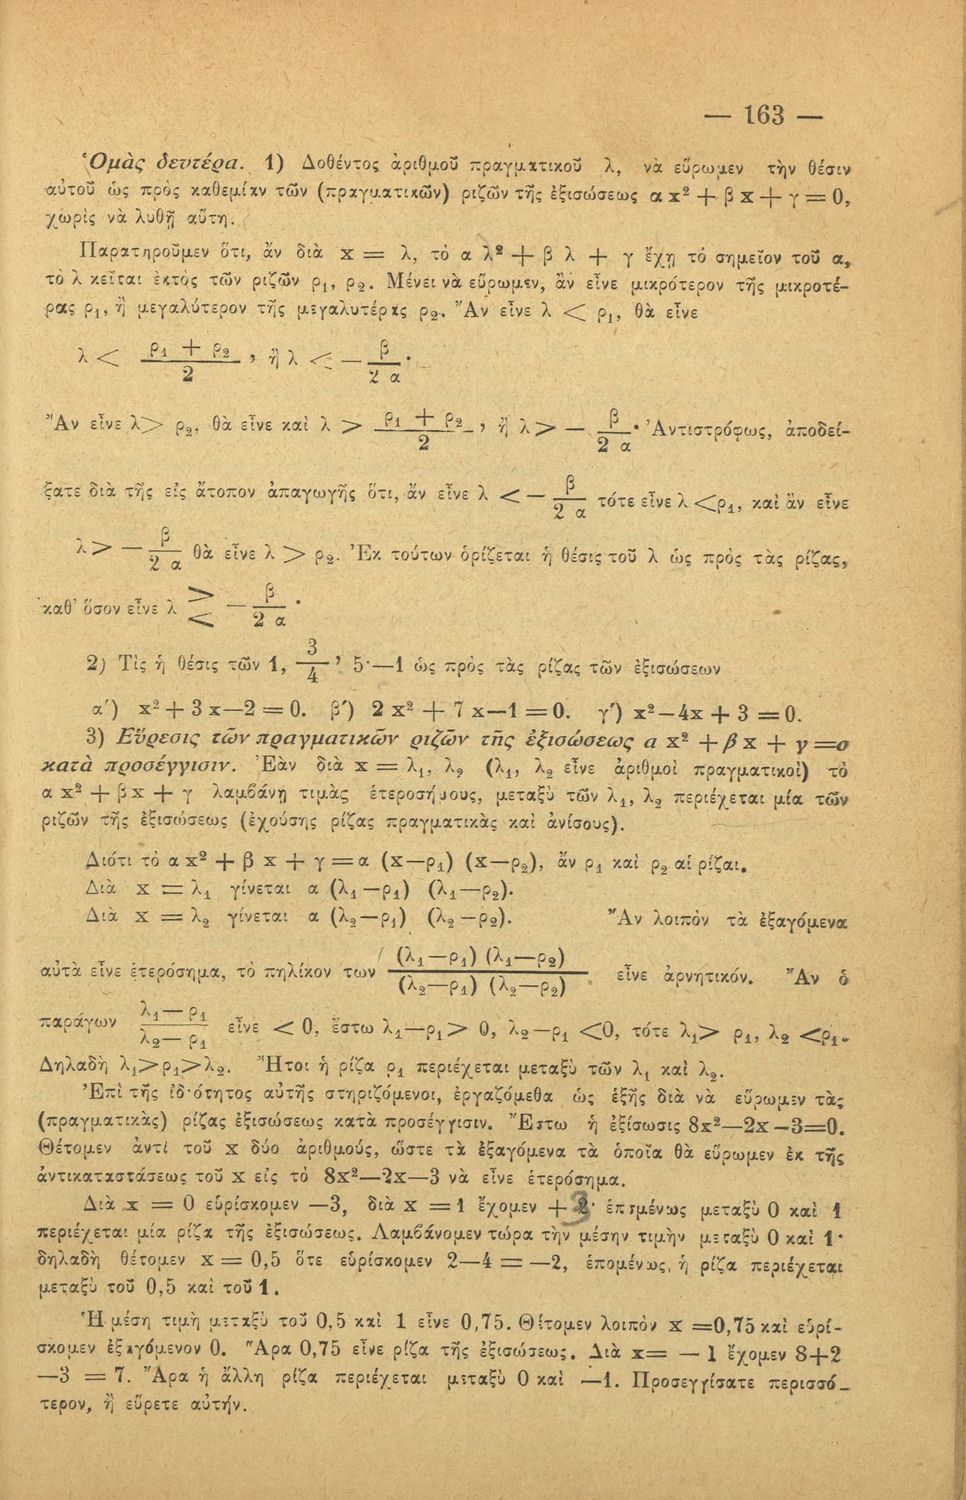 — 163 —
Ὁμὰς δευτέρα. 1) Δοθέντος ἀριθμοῦ πραγματικοῦ λ, νὰ εὕρωμεν τὴν θέσιν
αὐτοῦ ὡς πρὸς καθεμίαν τῶν (πραγματικῶν) ριζῶν τῆς ἐξισώσεως α x² + β x + γ = 0,
χωρὶς νὰ λυθῇ αὕτη.
Παρατηροῦμεν ὅτι, ἂν διὰ x = λ, τὸ α λ² + β λ + γ ἔχῃ τὸ σημεῖον τοῦ α,
τὸ λ κεῖται ἐκτὸς τῶν ριζῶν ρ₁, ρ₂. Μένει νὰ εὕρωμεν, ἂν εἶνε μικρότερον τῆς μικροτέ-
ρας ρ₁, ἢ μεγαλύτερον τῆς μεγαλυτέρας ρ₂. Ἂν εἶνε λ < ρ₁, θὰ εἶνε
λ < (ρ₁ + ρ₂)/2, ἢ λ < — β/2α.
Ἂν εἶνε λ > ρ₂, θὰ εἶνε καὶ λ > (ρ₁ + ρ₂)/2, ἢ λ > — β/2α. Ἀντιστρόφως, ἀποδεί-
ξατε διὰ τῆς εἰς ἄτοπον ἀπαγωγῆς ὅτι, ἂν εἶνε λ < — β/2α τότε εἶνε λ < ρ₁, καὶ ἂν εἶνε
λ > — β/2α θὰ εἶνε λ > ρ₂. Ἐκ τούτων ὁρίζεται ἡ θέσις τοῦ λ ὡς πρὸς τὰς ρίζας,
καθ' ὅσον εἶνε λ ≷ — β/2α.
2) Τίς ἡ θέσις τῶν 1, 3/4, 5·—1 ὡς πρὸς τὰς ρίζας τῶν ἐξισώσεων
α') x² + 3 x—2 = 0. β') 2 x² + 7 x—1 = 0. γ') x²—4x + 3 = 0.
3) Εὕρεσις τῶν πραγματικῶν ριζῶν τῆς ἐξισώσεως α x² + β x + γ = ο
κατὰ προσέγγισιν. Ἐὰν διὰ x = λ₁, λ₂ (λ₁, λ₂ εἶνε ἀριθμοὶ πραγματικοὶ) τὸ
α x² + β x + γ λαμβάνῃ τιμὰς ἑτεροσήμους, μεταξὺ τῶν λ₁, λ₂ περιέχεται μία τῶν
ριζῶν τῆς ἐξισώσεως (ἐχούσης ρίζας πραγματικὰς καὶ ἀνίσους).
Διότι τὸ α x² + β x + γ = α (x—ρ₁) (x—ρ₂), ἂν ρ₁ καὶ ρ₂ αἱ ρίζαι.
Διὰ x = λ₁ γίνεται α (λ₁—ρ₁) (λ₁—ρ₂).
Διὰ x = λ₂ γίνεται α (λ₂—ρ₁) (λ₂—ρ₂). Ἂν λοιπὸν τὰ ἐξαγόμενα
αὐτὰ εἶνε ἑτερόσημα, τὸ πηλίκον των (λ₁—ρ₁) (λ₁—ρ₂)/(λ₂—ρ₁) (λ₂—ρ₂) εἶνε ἀρνητικόν. Ἂν ὁ
παράγων (λ₁— ρ₁)/(λ₂— ρ₁) εἶνε < 0, ἔστω λ₁—ρ₁ > 0, λ₂—ρ₁ < 0, τότε λ₁ > ρ₁, λ₂ < ρ₁.
Δηλαδὴ λ₁>ρ₁>λ₂. Ἤτοι ἡ ρίζα ρ₁ περιέχεται μεταξὺ τῶν λ₁ καὶ λ₂.
Ἐπὶ τῆς ἰδιότητος αὐτῆς στηριζόμενοι, ἐργαζόμεθα ὡς ἑξῆς διὰ νὰ εὕρωμεν τὰς
(πραγματικὰς) ρίζας ἐξισώσεως κατὰ προσέγγισιν. Ἔστω ἡ ἐξίσωσις 8x²—2x—3=0.
Θέτομεν ἀντὶ τοῦ x δύο ἀριθμούς, ὥστε τὰ ἐξαγόμενα τὰ ὁποῖα θὰ εὕρωμεν ἐκ τῆς
ἀντικαταστάσεως τοῦ x εἰς τὸ 8x²—2x—3 νὰ εἶνε ἑτερόσημα.
Διὰ x = 0 εὑρίσκομεν —3, διὰ x = 1 ἔχομεν + 3· ἑπομένως μεταξὺ 0 καὶ 1
περιέχεται μία ρίζα τῆς ἐξισώσεως. Λαμβάνομεν τώρα τὴν μέσην τιμὴν μεταξὺ 0 καὶ 1·
δηλαδὴ θέτομεν x = 0,5 ὅτε εὑρίσκομεν 2—4 = —2, ἑπομένως, ἡ ρίζα περιέχεται
μεταξὺ τοῦ 0,5 καὶ τοῦ 1.
Ἡ μέση τιμὴ μεταξὺ τοῦ 0,5 καὶ 1 εἶνε 0,75. Θέτομεν λοιπὸν x =0,75 καὶ εὑρί-
σκομεν ἐξαγόμενον 0. Ἄρα 0,75 εἶνε ρίζα τῆς ἐξισώσεως. Διὰ x= — 1 ἔχομεν 8+2
—3 = 7. Ἄρα ἡ ἄλλη ρίζα περιέχεται μεταξὺ 0 καὶ —1. Προσεγγίσατε περισσό-
τερον, ἢ εὕρετε αὐτήν.